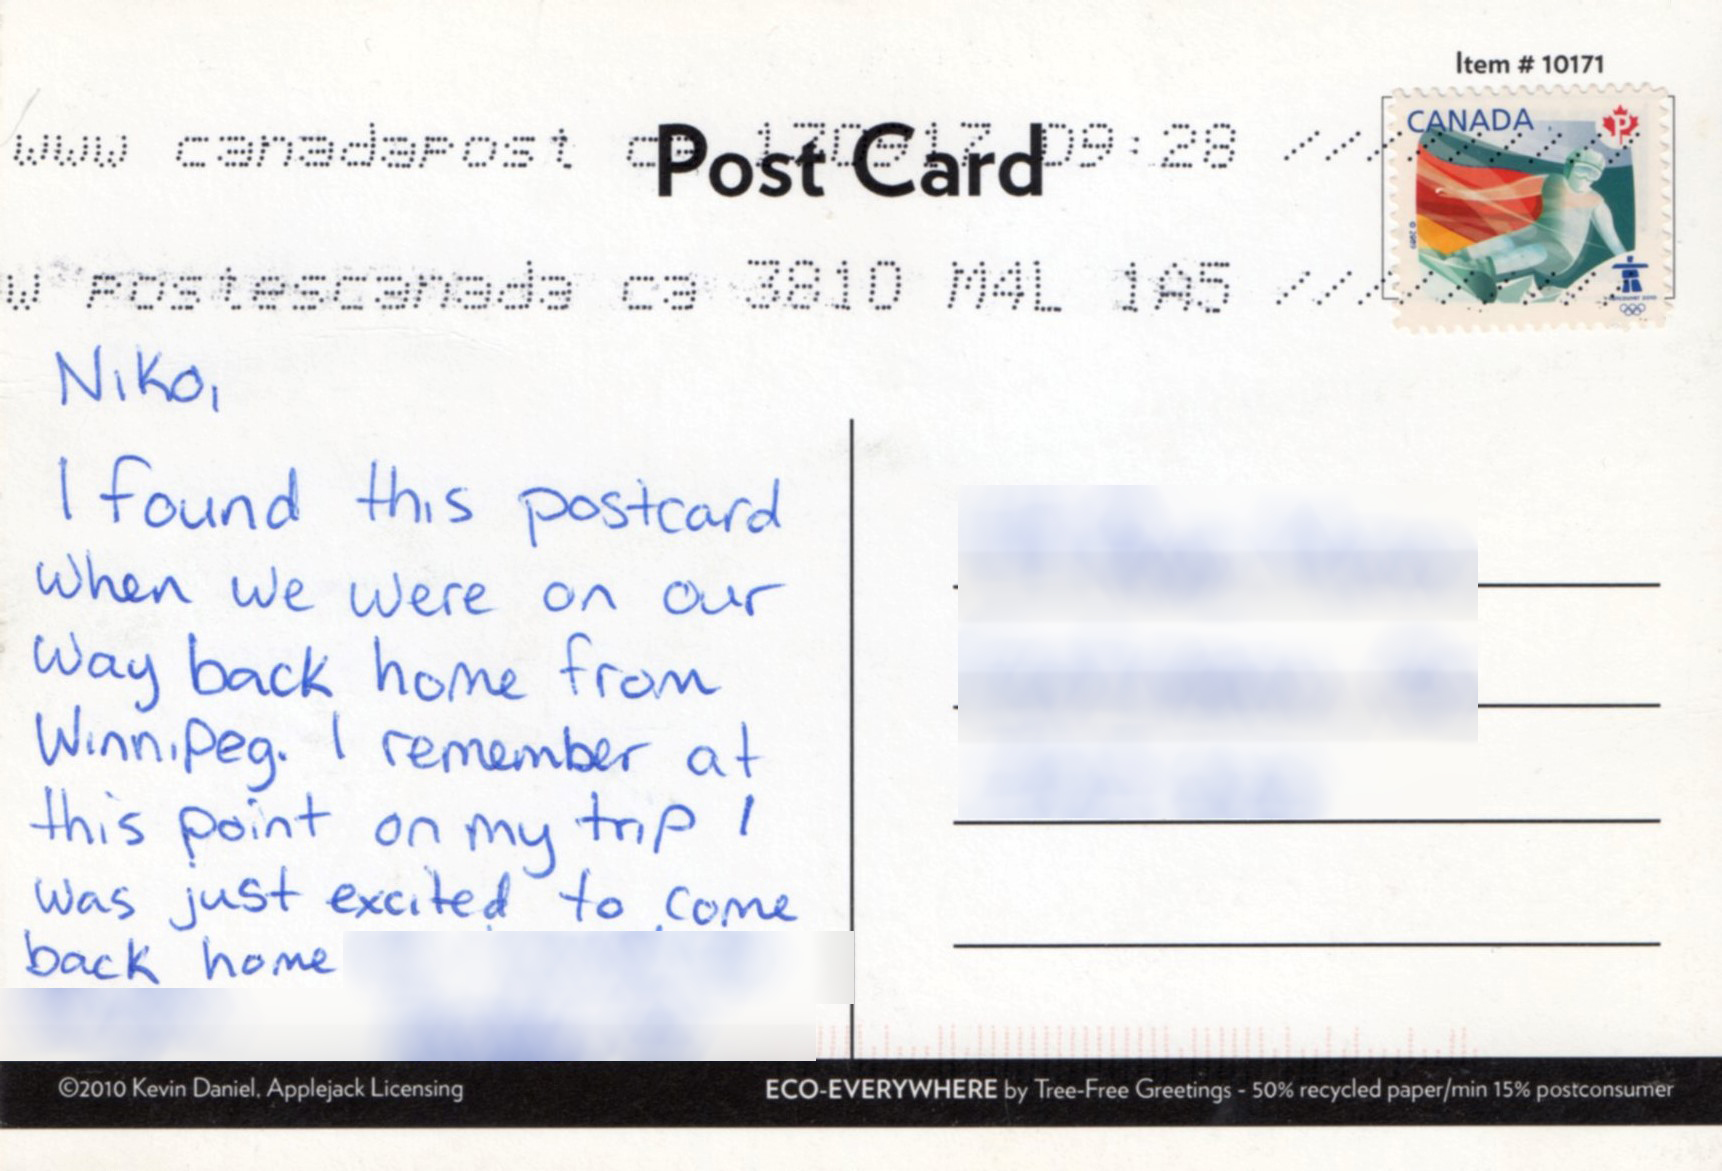 Item # 10171
CANADA
P
Post Card
www canadapost ca 09:28
postescanada ca 3810 M4L 1A5
Niko,
I found this postcard
when we were on our
way back home from
Winnipeg. I remember at
this point on my trip I
was just excited to come
back home
©2010 Kevin Daniel, Applejack Licensing
ECO-EVERYWHERE by Tree-Free Greetings - 50% recycled paper/min 15% postconsumer